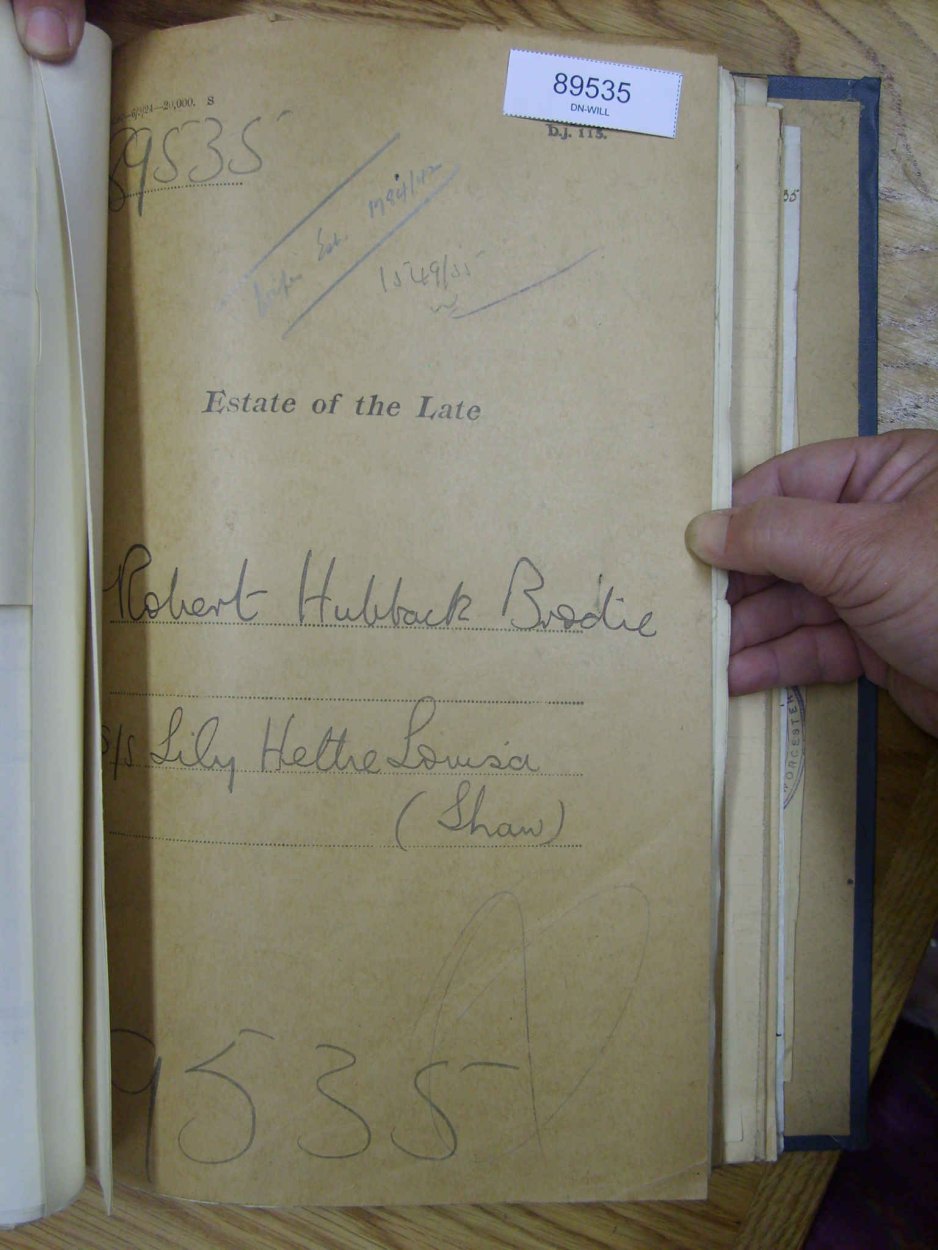 89535
DN-WILL
6/3/24—20,000. S
D.J. 113.
89535
Est. 1784/42
1549/55
35
Estate of the Late
Robert Hubback Brodie
s/s Lily Hethe Louisa
(Shaw)
ORCESTER
9535